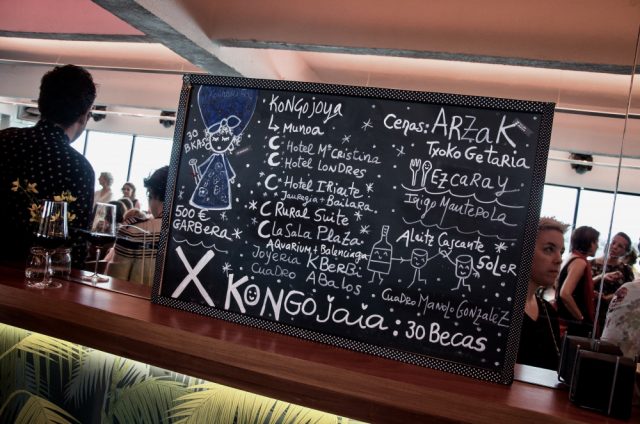 30
BKAS
500 €
GARBERA
KONGOJOYA
↳ MUNOA
HOTEL Mª CRISTINA
HOTEL LONDRES
HOTEL IRIARTE
JAUREGIA + BAILARA
RURAL SUITE
LA SALA PLAZA
AQUARIUM + BALENCIAGA
JOYERIA KBERBi
CUADRO ABALOS
CENAS: ARZAK
TXOKO GETARIA
EZCARAY
IÑIGO MANTEPOLA
ALAITZ CASCANTE
SOLER
CUADRO MANOLO GONZALEZ
X KONGOJAIA: 30 BECAS